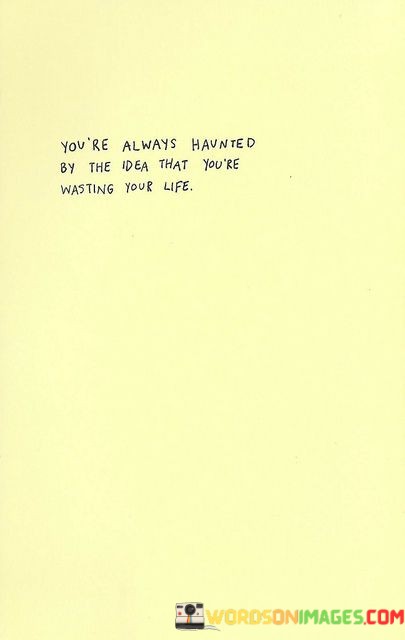 YOU'RE ALWAYS HAUNTED
BY THE IDEA THAT YOU'RE
WASTING YOUR LIFE.
WORDSONIMAGES.COM